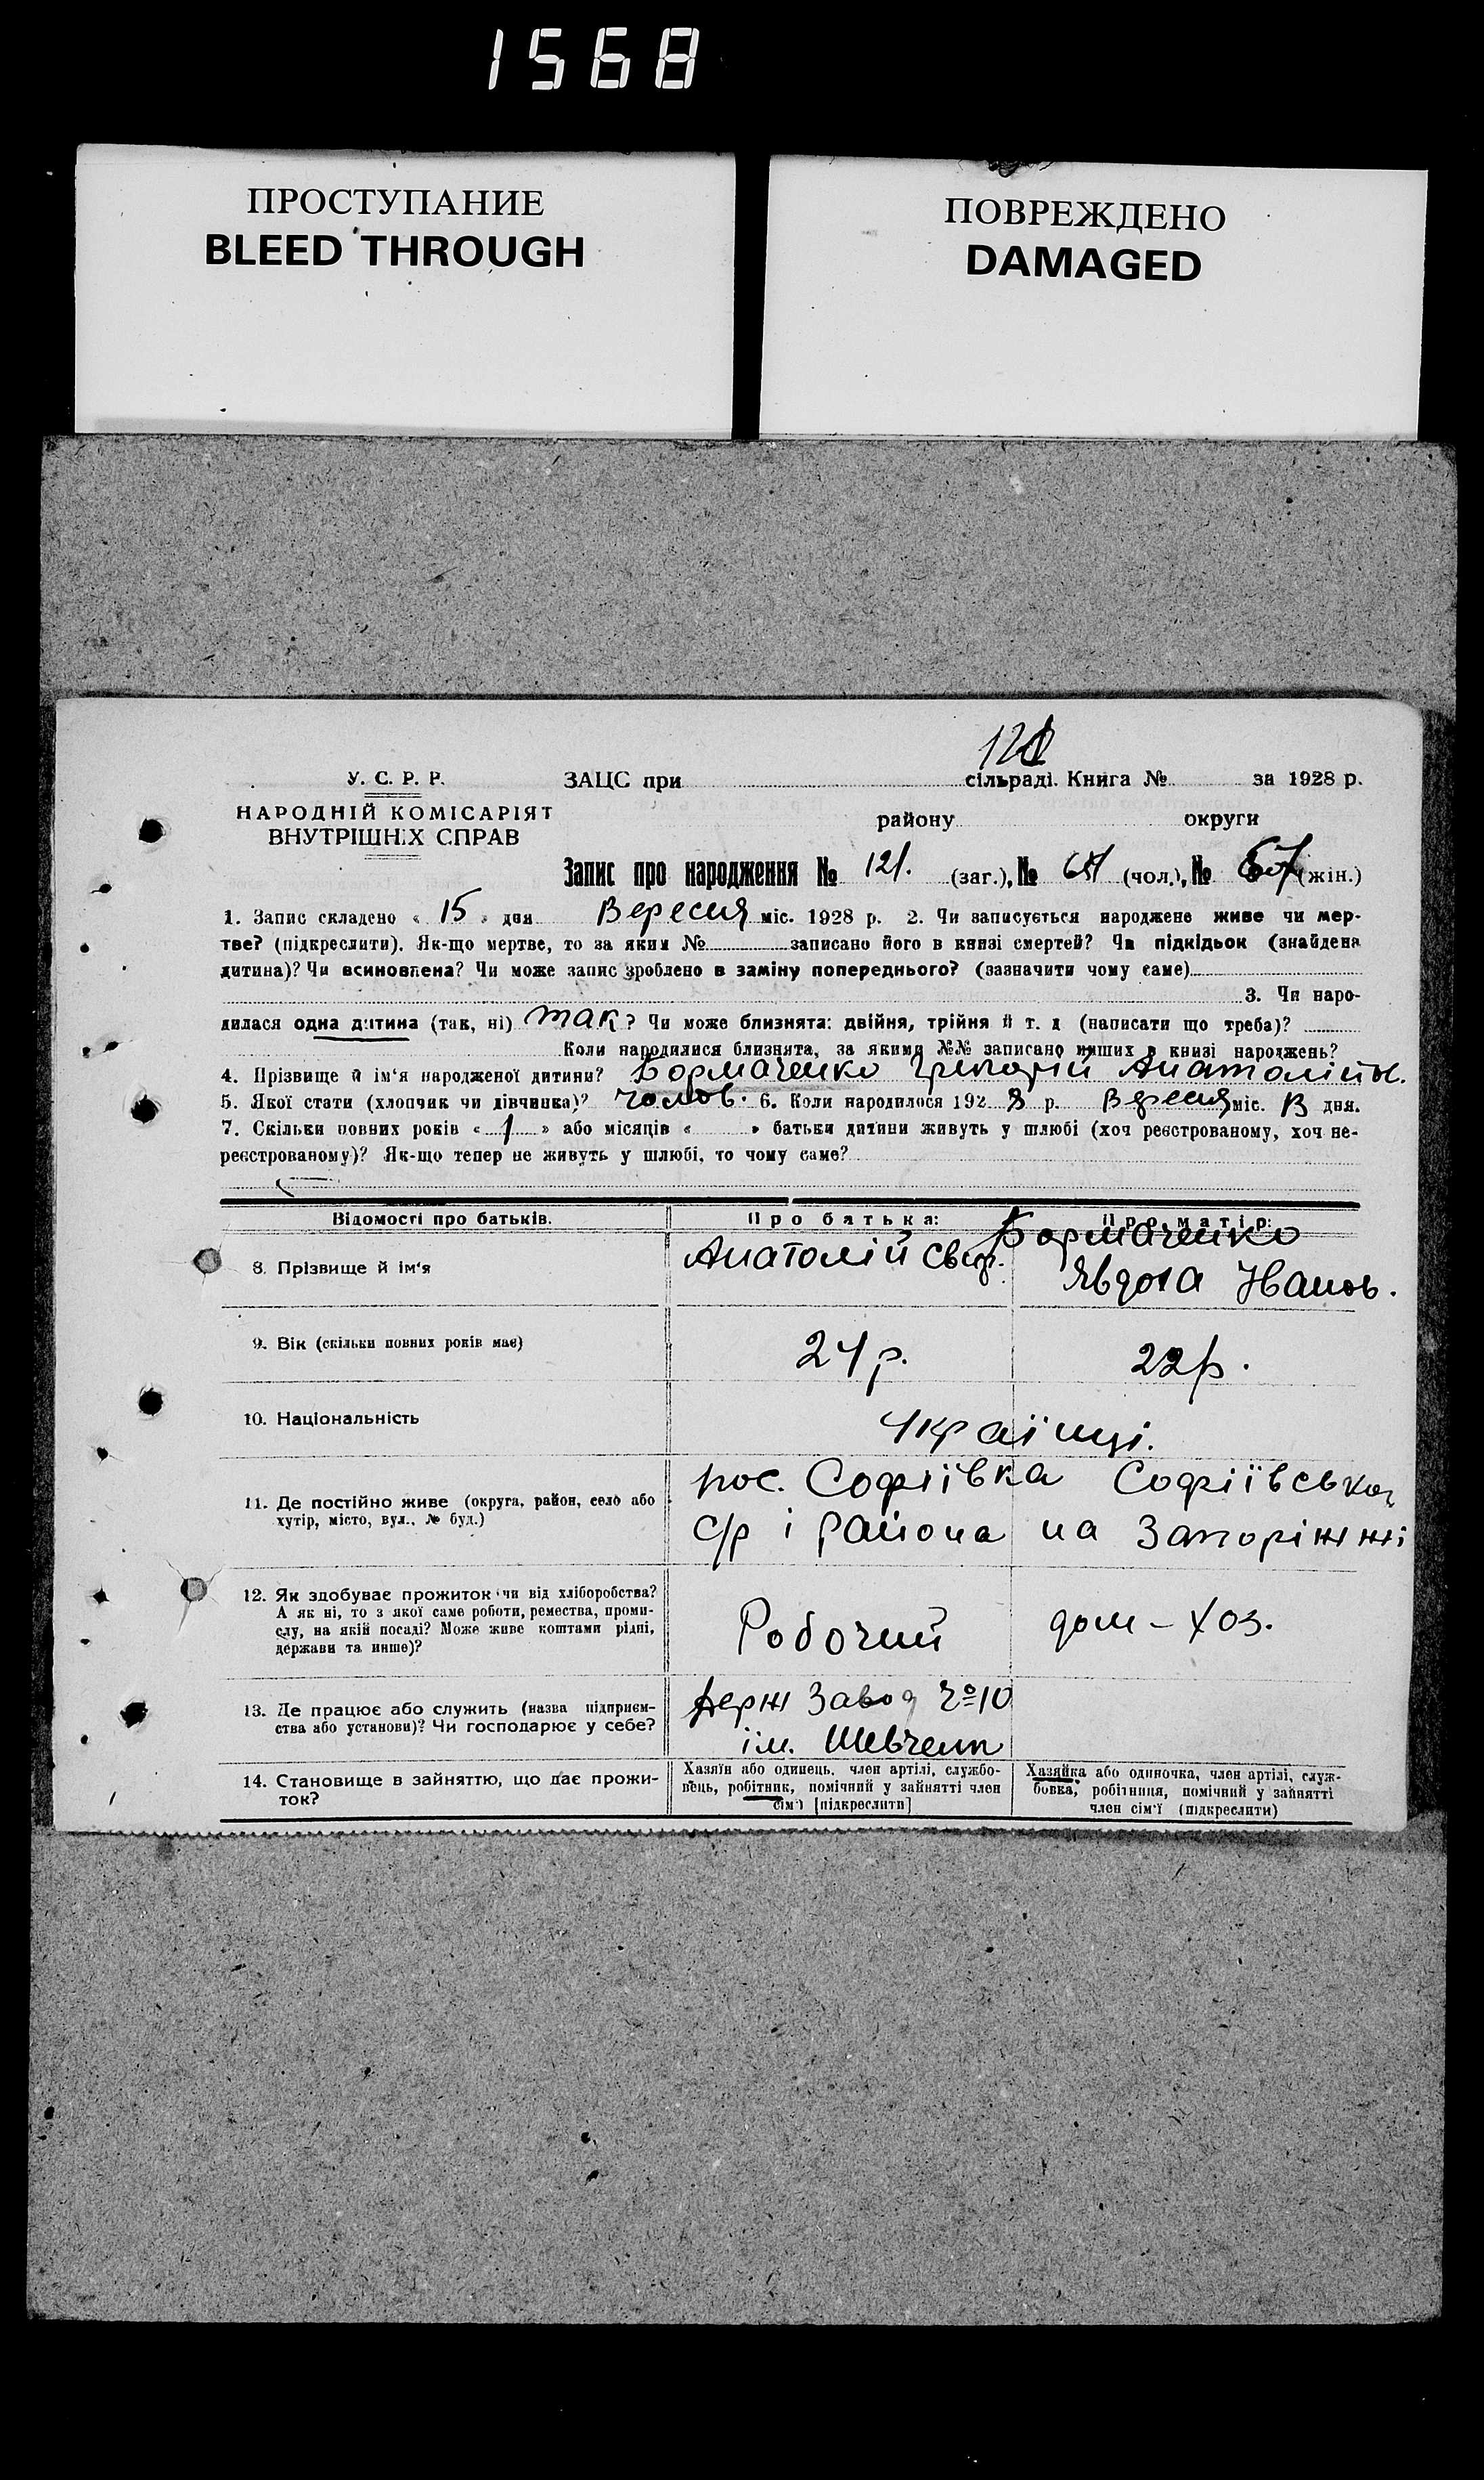 1568
ПРОСТУПАНИЕ
BLEED THROUGH
ПОВРЕЖДЕНО
DAMAGED
У. С. Р. Р.
НАРОДНІЙ КОМІСАРІЯТ
ВНУТРІШНІХ СПРАВ
ЗАЦС при сільраді. Книга № за 1928 р.
району округи
Запис про народження № 121. (заг.), № (чол.), № 67 (жін.)
1. Запис складено « 15 » дня Вересня міс. 1928 р. 2. Чи записується народжене живе чи мер-
тве? (підкреслити). Як-що мертве, то за яким № записано його в книзі смертей? Чи підкідьок (знайдена
дитина)? Чи всиновлена? Чи може запис зроблено в заміну попереднього? (зазначити чому саме)
3. Чи наро-
дилася одна дитина (так, ні) так? Чи може близнята: двійня, трійня й т. д (написати що треба)?
Коли народилися близнята, за якими №№ записано инших в книзі народжень?
4. Прізвище й ім'я народженої дитини? Бормаченко Григорій Анатолійов.
5. Якої стати (хлопчик чи дівчинка)? чолов. 6. Коли народилося 192 8 р. Вересня міс. 13 дня.
7. Скільки повних років « 1 » або місяців « » батьки дитини живуть у шлюбі (хоч реєстрованому, хоч не-
реєстрованому)? Як-що тепер не живуть у шлюбі, то чому саме?
Відомості про батьків. Про батька: Про матір:
8. Прізвище й ім'я Анатолій Бормаченко
Явдоха Іванов.
9. Вік (скільки повних років має) 24 р. 22 р.
10. Національність Українці.
11. Де постійно живе (округа, район, село або
хутір, місто, вул., № буд.)
пос. Софіївка Софіївської
с/р і района на Запоріжжі
12. Як здобуває прожиток чи від хліборобства?
А як ні, то з якої саме роботи, ремества, проми-
слу, на якій посаді? Може живе коштами рідні,
держави та инше)?
Робочий дом-хоз.
13. Де працює або служить (назва підприєм-
ства або установи)? Чи господарює у себе?
Держ Завод № 10
ім. Шевченк
14. Становище в зайняттю, що дає прожи-
ток?
Хазяїн або одинець, член артілі, службо-
вець, робітник, помічний у зайнятті член
сім'ї [підкреслити]
Хазяйка або одиночка, член артілі, служ-
бовка, робітниця, помічний у зайнятті
член сім'ї (підкреслити)